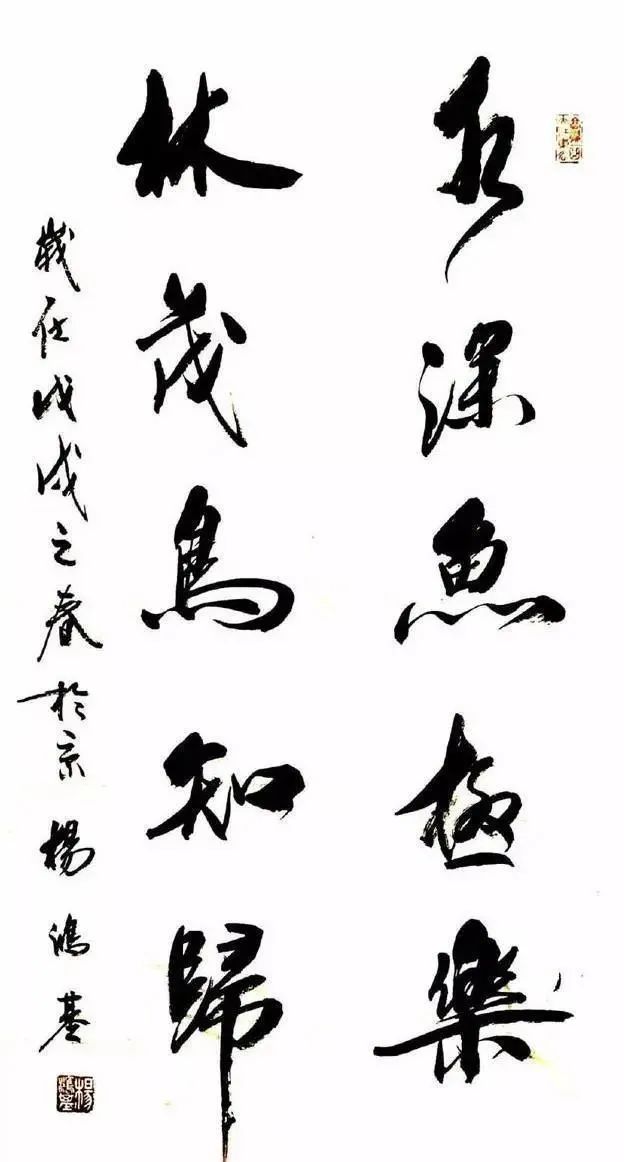 水深魚極樂
林茂鳥知歸
歲在戊戌之春於京 楊鴻基
楊鴻基